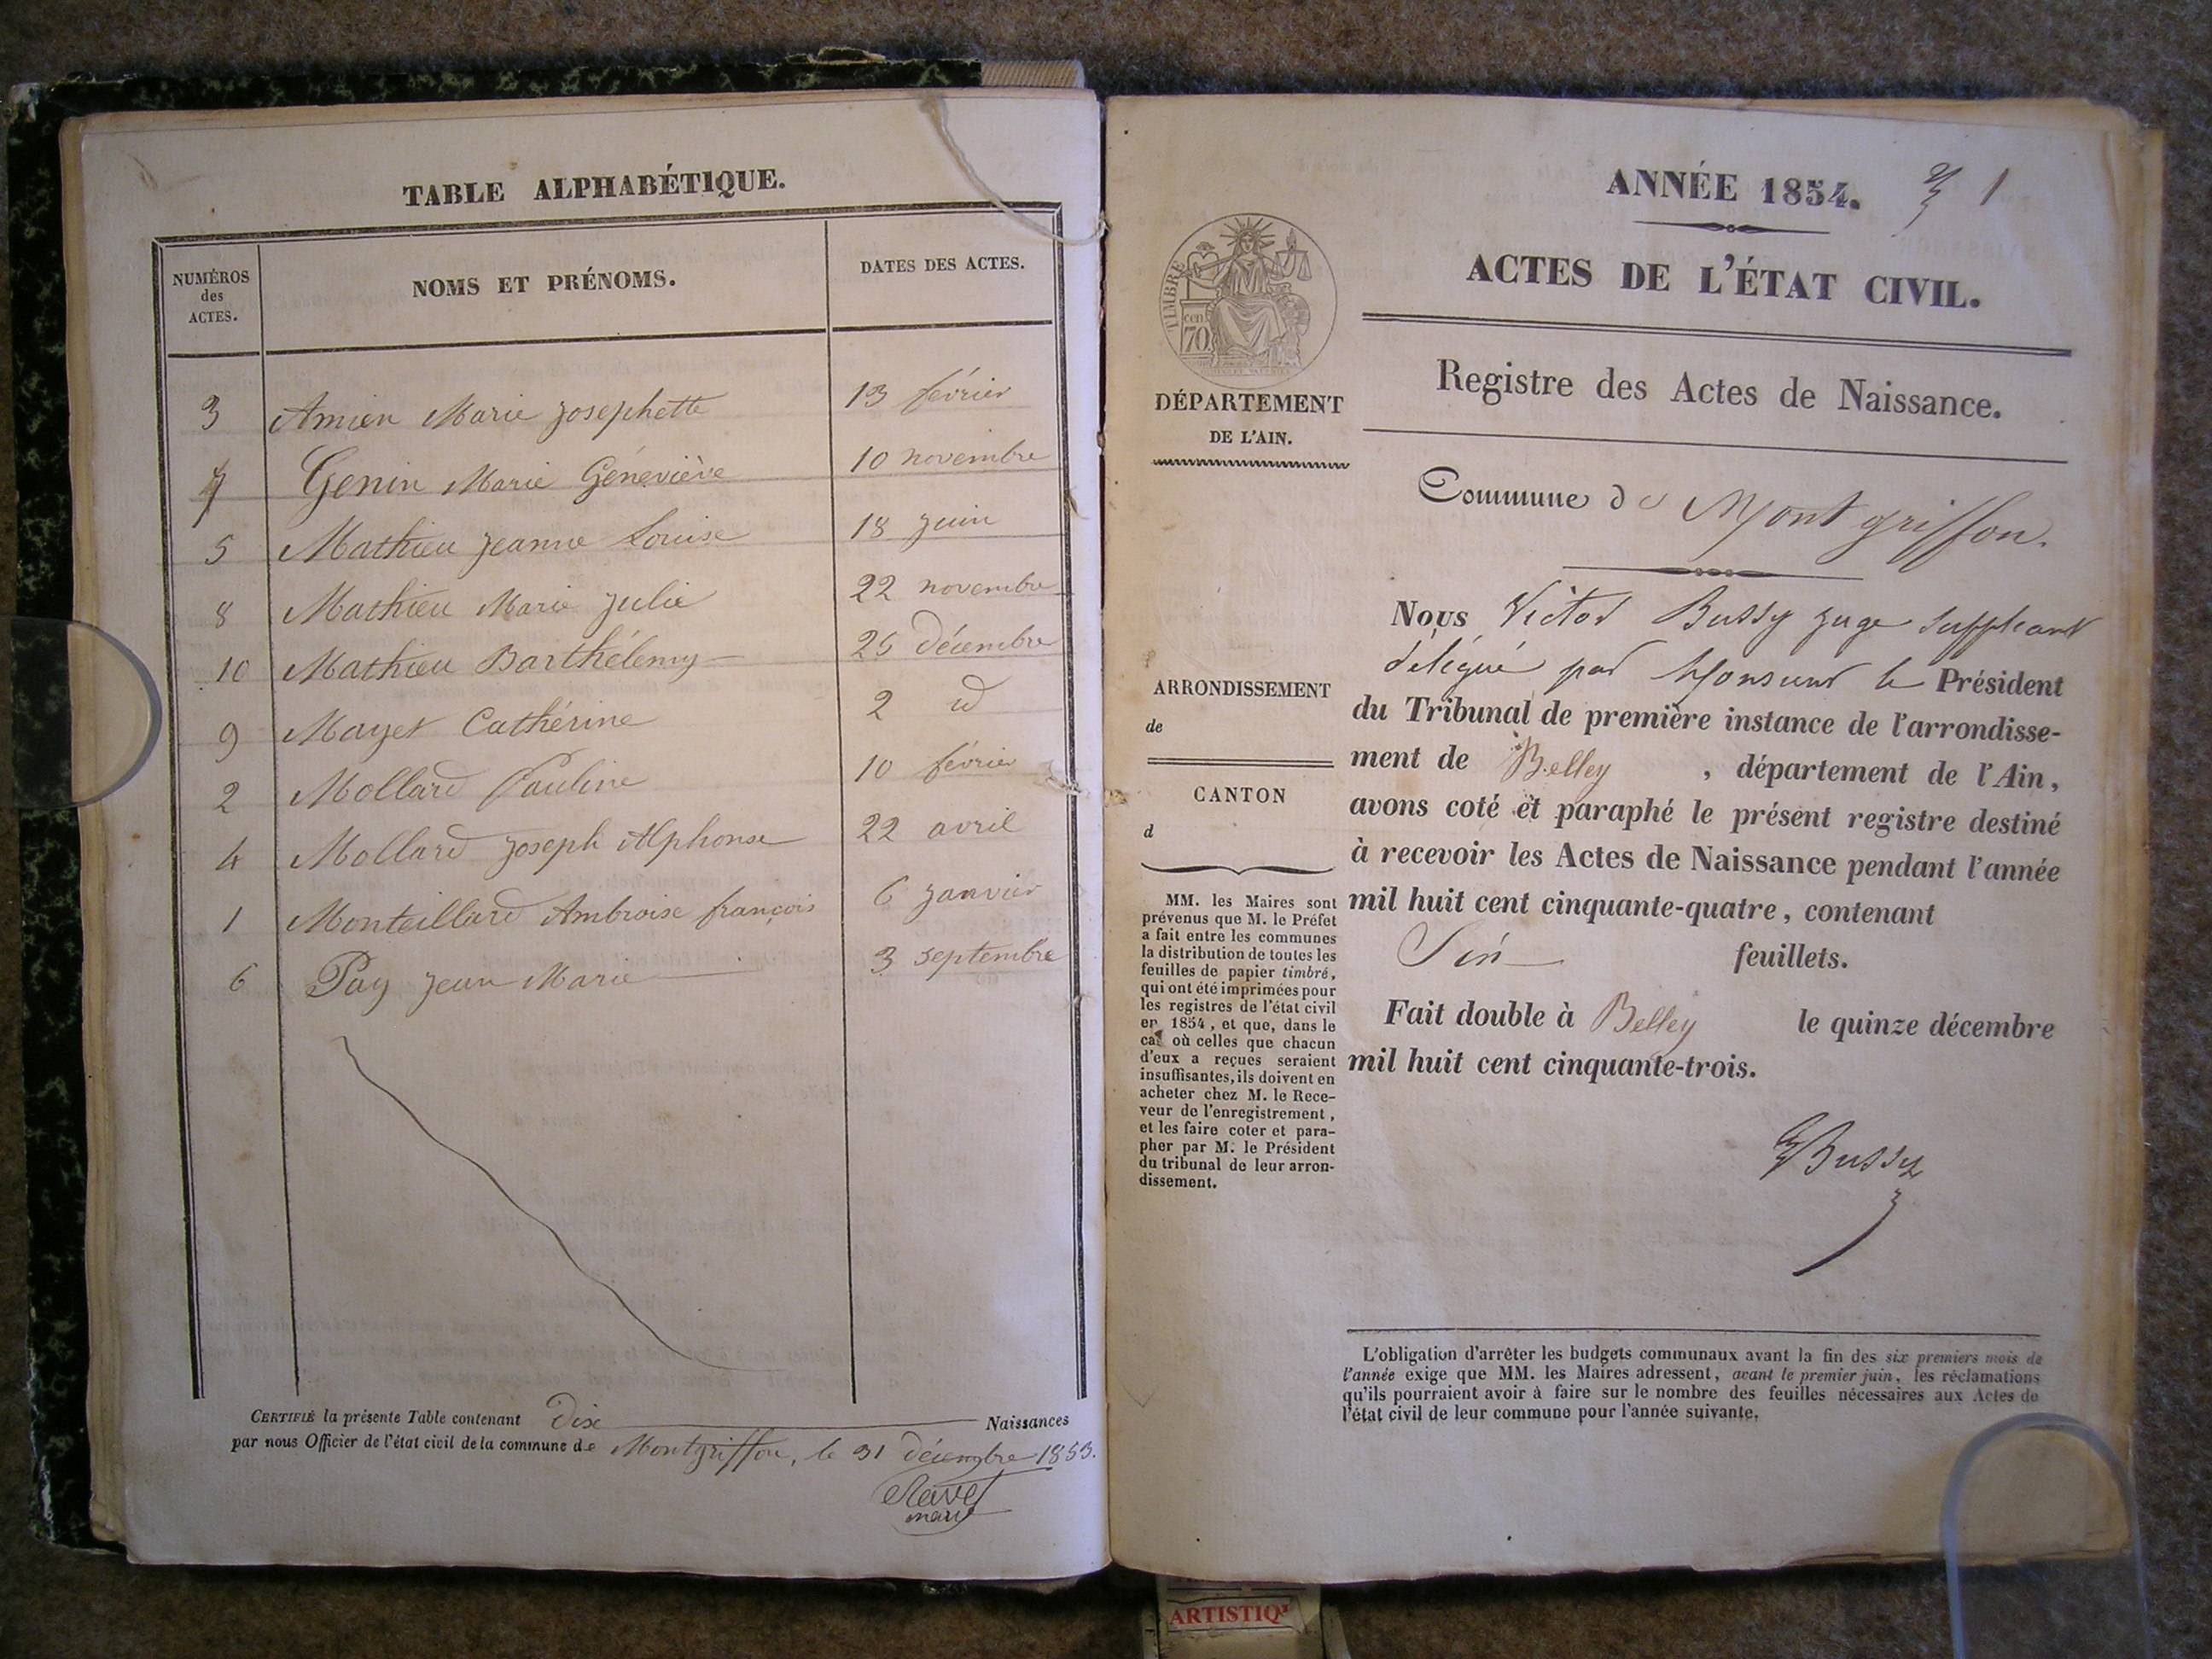 TABLE ALPHABÉTIQUE.
NUMÉROS des ACTES. NOMS ET PRÉNOMS. DATES DES ACTES.
3 Amien Marie Josephette 13 février
7 Genin Marie Géneviève 10 novembre
5 Mathieu Jeanne Louise 18 juin
8 Mathieu Marie Julie 22 novembre
10 Mathieu Barthélemy 25 décembre
9 Mayet Cathérine 2 id
2 Mollard Pauline 10 février
4 Mollard Joseph Alphonse 22 avril
1 Monteillard Ambroise françois 6 janvier
6 Pay Jean Marie 3 septembre
CERTIFIÉ la présente Table contenant Dix Naissances
par nous Officier de l'état civil de la commune de Montgriffon, le 31 décembre 1853.
maire
ANNÉE 1854. 1
ACTES DE L'ÉTAT CIVIL.
TIMBRE
cen
70
Registre des Actes de Naissance.
DÉPARTEMENT
DE L'AIN.
Commune de Montgriffon.
Nous Victor Bussy juge suppléant
délégué par Monsieur le Président
ARRONDISSEMENT
de
du Tribunal de première instance de l'arrondisse-
ment de Belley , département de l'Ain,
CANTON
d
avons coté et paraphé le présent registre destiné
à recevoir les Actes de Naissance pendant l'année
mil huit cent cinquante-quatre, contenant
feuillets.
Fait double à Belley le quinze décembre
mil huit cent cinquante-trois.
Bussy
MM. les Maires sont
prévenus que M. le Préfet
a fait entre les communes
la distribution de toutes les
feuilles de papier timbré,
qui ont été imprimées pour
les registres de l'état civil
en 1854, et que, dans le
cas où celles que chacun
d'eux a reçues seraient
insuffisantes, ils doivent en
acheter chez M. le Rece-
veur de l'enregistrement,
et les faire coter et para-
pher par M. le Président
du tribunal de leur arron-
dissement.
L'obligation d'arrêter les budgets communaux avant la fin des six premiers mois de
l'année exige que MM. les Maires adressent, avant le premier juin, les réclamations
qu'ils pourraient avoir à faire sur le nombre des feuilles nécessaires aux Actes de
l'état civil de leur commune pour l'année suivante.
ARTISTIQ